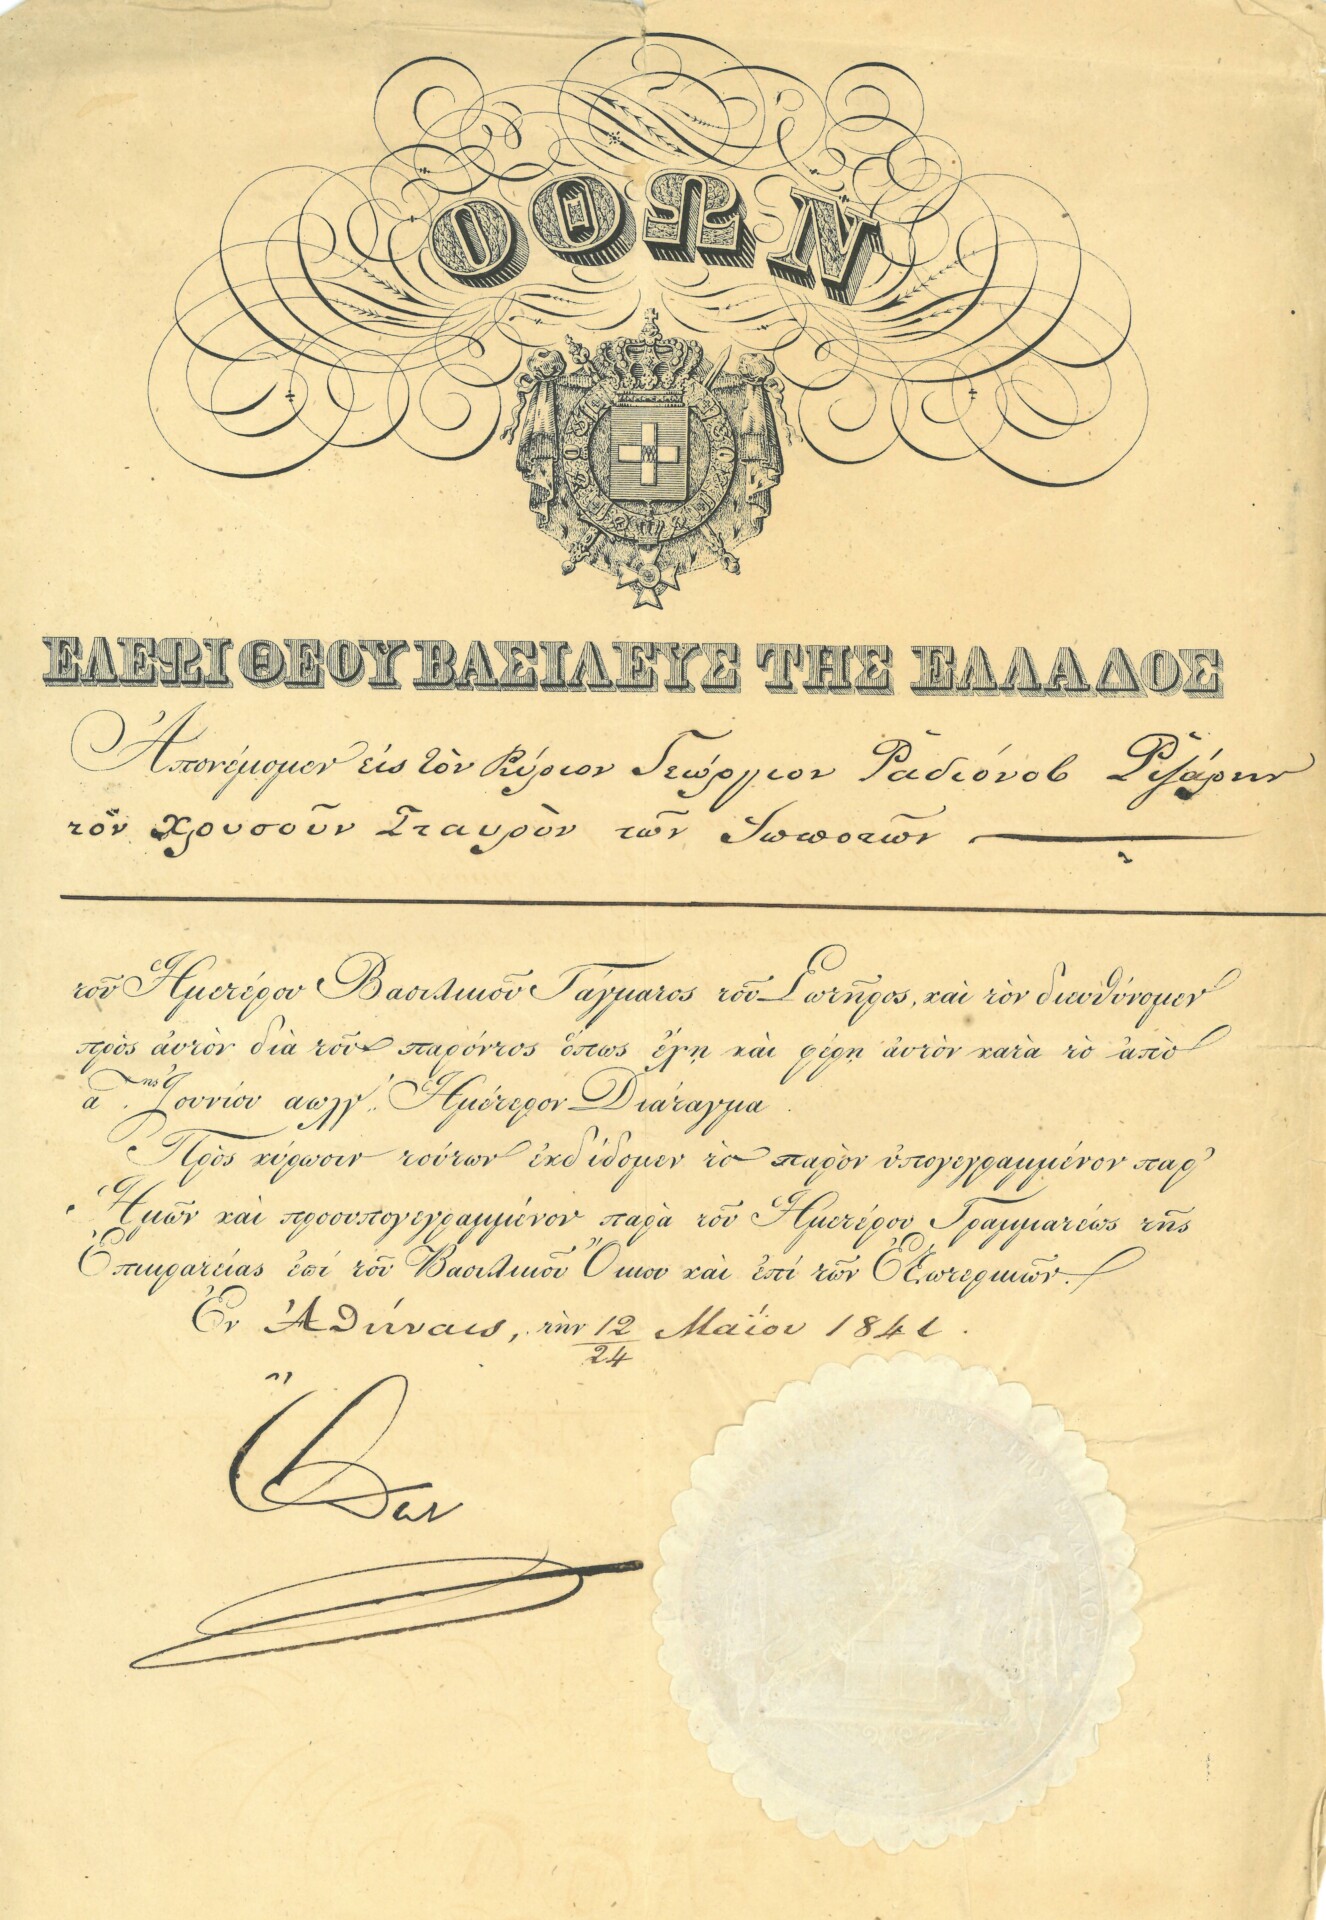 ΟΘΩΝ
ΕΛΕΩΙ ΘΕΟΥ ΒΑΣΙΛΕΥΣ ΤΗΣ ΕΛΛΑΔΟΣ
Ἀπονέμομεν εἰς τὸν Κύριον Γεώργιον Ῥαδιόνοβ Ῥιζάρην
τὸν Χρυσοῦν Σταυρὸν τῶν Ἱπποτῶν
τοῦ Ἡμετέρου Βασιλικοῦ Τάγματος τοῦ Σωτῆρος, καὶ τὸν διευθύνομεν
πρὸς αὐτὸν διὰ τοῦ παρόντος ὅπως ἔχη καὶ φέρη αὐτὸν κατὰ τὸ ἀπὸ
ά.ης Ἰουνίου αωλγ΄. Ἡμέτερον Διάταγμα.
Πρὸς κύρωσιν τούτων ἐκδίδομεν τὸ παρὸν ὑπογεγραμμένον παρ'
Ἡμῶν καὶ προσυπογεγραμμένον παρὰ τοῦ Ἡμετέρου Γραμματέως τῆς
Ἐπικρατείας ἐπὶ τοῦ Βασιλικοῦ Οἴκου καὶ ἐπὶ τῶν Ἐξωτερικῶν.
Ἐν Ἀθήναις, τὴν 12/24 Μαΐου 1841.
Ὄθων